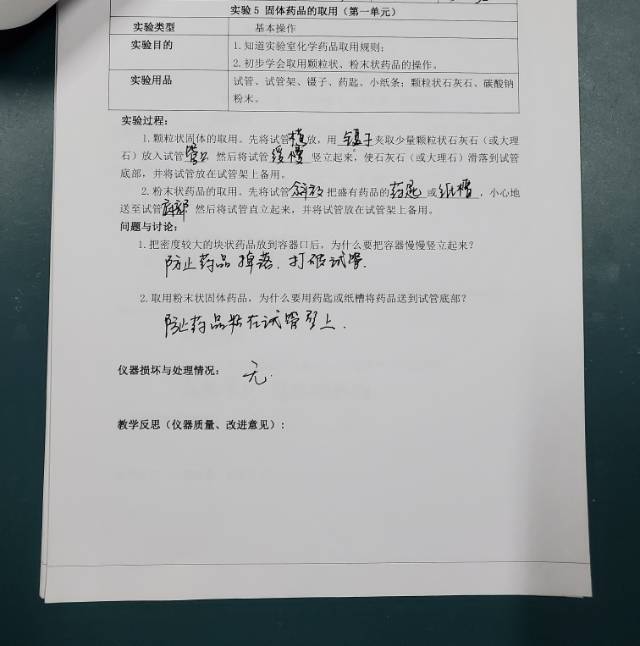 实验5 固体药品的取用（第一单元）
实验类型 基本操作
实验目的 1.知道实验室化学药品取用规则;
2.初步学会取用颗粒状、粉末状药品的操作。
实验用品 试管、试管架、镊子、药匙、小纸条；颗粒状石灰石、碳酸钠
粉末。
实验过程：
1.颗粒状固体的取用。先将试管横放，用 镊子 夹取少量颗粒状石灰石（或大理
石）放入试管管口 然后将试管 缓慢 竖立起来，使石灰石（或大理石）滑落到试管
底部，并将试管放在试管架上备用。
2.粉末状药品的取用。先将试管 斜放 把盛有药品的 药匙 或 纸槽 ，小心地
送至试管底部 然后将试管直立起来，并将试管放在试管架上备用。
问题与讨论：
1.把密度较大的块状药品放到容器口后，为什么要把容器慢慢竖立起来？
防止药品掉落，打破试管.
2.取用粉末状固体药品，为什么要用药匙或纸槽将药品送到试管底部？
防止药品粘在试管壁上.
仪器损坏与处理情况： 无.
教学反思（仪器质量、改进意见）: